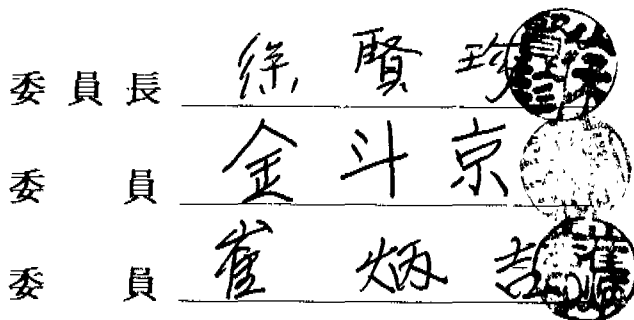 委員長 徐賢珍
委員 金斗京
委員 崔炳吉